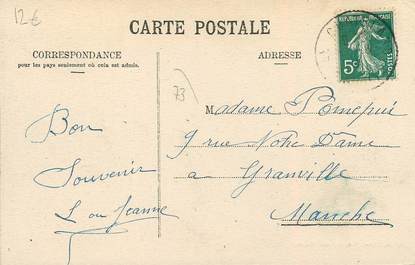 12€
CARTE POSTALE
CORRESPONDANCE
pour les pays seulement où cela est admis.
ADRESSE
REPUBLIQUE FRANÇAISE
5c
POSTES
73
Bon
Souvenir
Jeanne
Madame
9 rue Notre Dame
a Granville
Manche